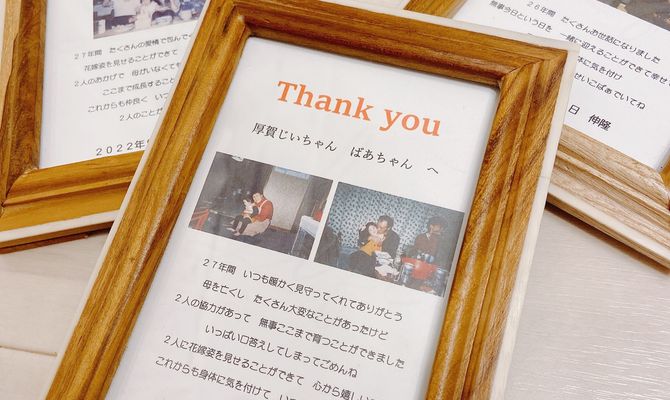 27年間 たくさんの愛情で包んで
花嫁姿を見せることができて
2人のおかげで 母がいなくても
ここまで成長すること
これからも仲良く いつま
2人のこと
2022年
Thank you
厚賀じいちゃん ばあちゃん へ
27年間 いつも暖かく見守ってくれてありがとう
母を亡くし たくさん大変なことがあったけど
2人の協力があって 無事ここまで育つことができました
いっぱい口答えしてしまってごめんね
2人に花嫁姿を見せることができて 心から嬉しい
これからも身体に気を付けて
26年間 たくさんお世話になりました
無事今日という日を 一緒に迎えることができて幸せ
身体に気を付け
せいこばぁでいてね
日 伸隆